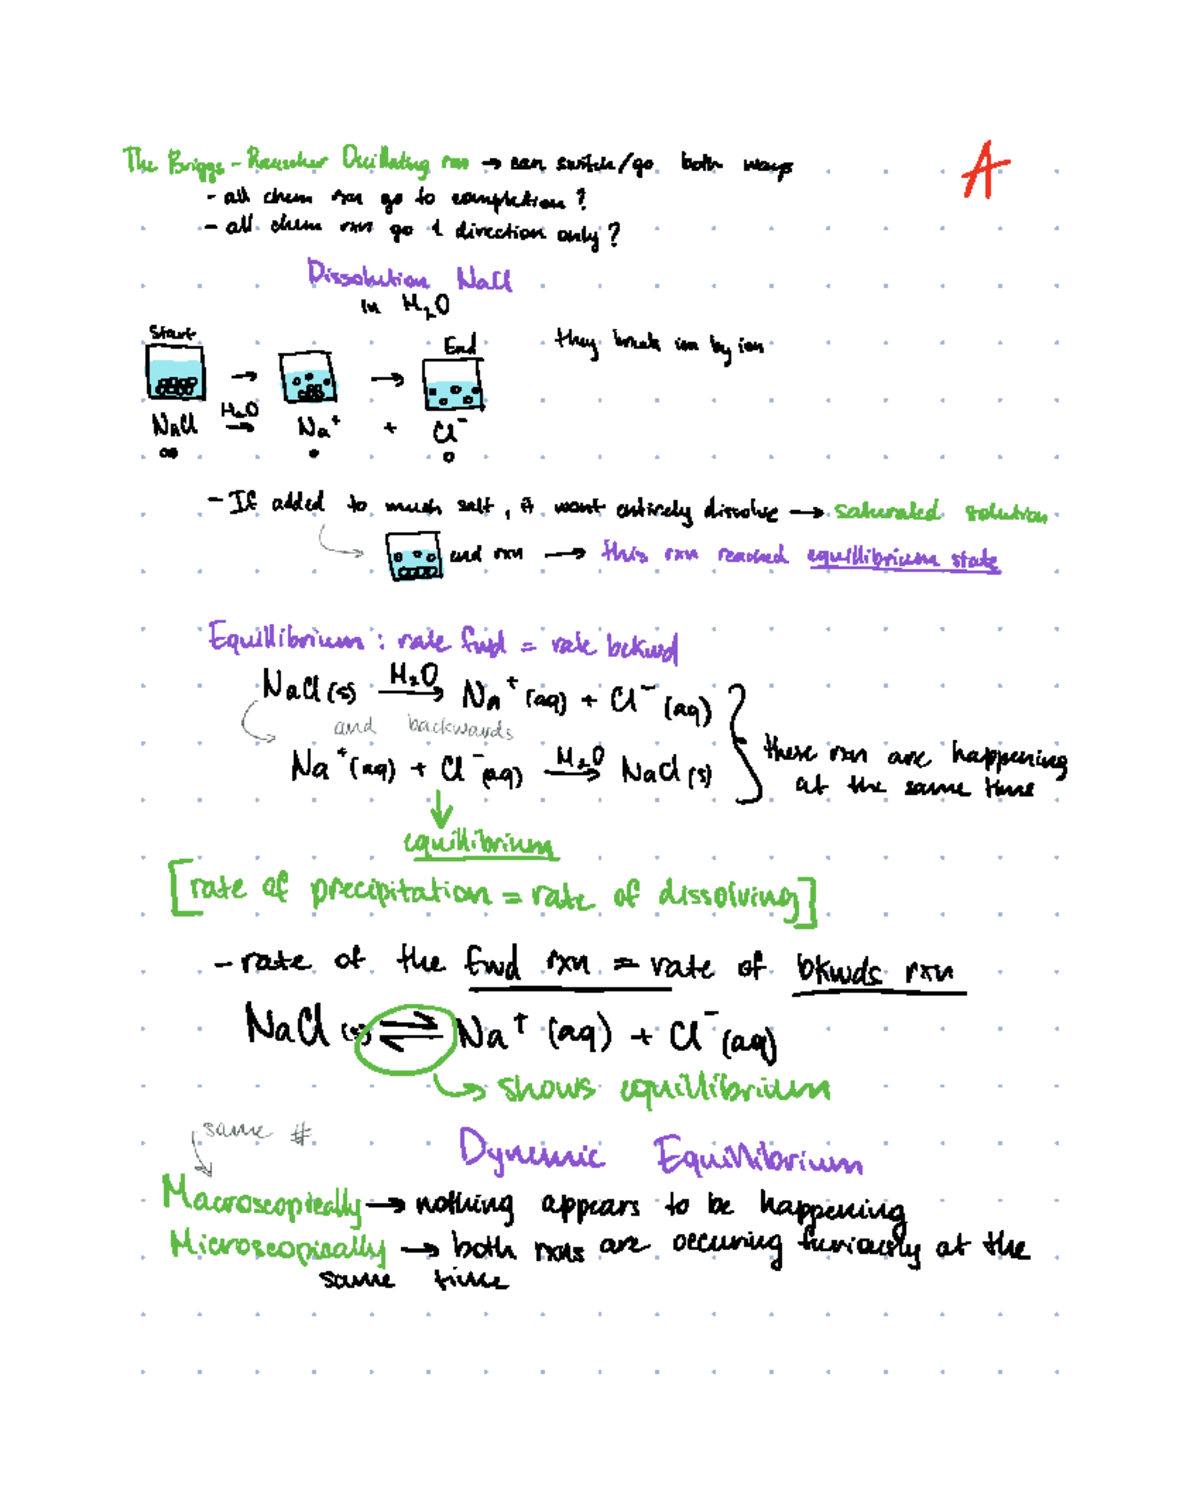 The Briggs-Rauscher Oscillating rxn → can switch/go both ways
A
- all chem rxn go to completion?
- all chem rxn go 1 direction only?
Dissolution NaCl
in H₂O
Start
End
they break ion by ion
NaCl H₂O → Na⁺ + Cl⁻
- If added to much salt, it wont entirely dissolve → saturated solution
end rxn → this rxn reached equillibrium state
Equillibrium: rate fwd = rate bckwd
NaCl(s) H₂O → Na⁺(aq) + Cl⁻(aq)
and backwards
Na⁺(aq) + Cl⁻(aq) H₂O → NaCl(s)
these rxn are happening
at the same time
equillibrium
[rate of precipitation = rate of dissolving]
- rate of the fwd rxn = rate of bkwds rxn
NaCl(s) ⇌ Na⁺(aq) + Cl⁻(aq)
→ shows equillibrium
same #
Dynemic Equillibrium
Macroscopically → nothing appears to be happening
Microscopically → both rxns are occuring furiously at the
same time